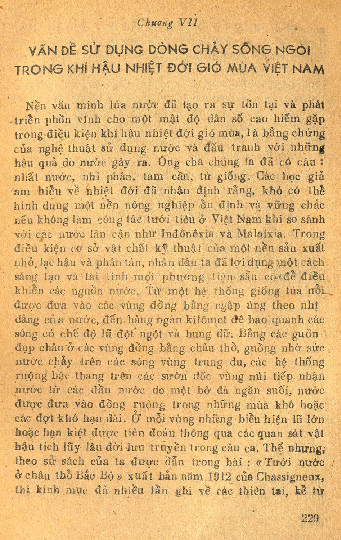 Chương VII
VẤN ĐỀ SỬ DỤNG DÒNG CHẢY SÔNG NGÒI
TRONG KHÍ HẬU NHIỆT ĐỚI GIÓ MÙA VIỆT NAM
Nền văn minh lúa nước đã tạo ra sự tồn tại và phát
triển phồn vinh cho một mật độ dân số cao hiếm gặp
trong điều kiện khí hậu nhiệt đới gió mùa, là bằng chứng
của nghệ thuật sử dụng nước và đấu tranh với những
hậu quả do nước gây ra. Ông cha chúng ta đã có câu :
nhất nước, nhì phân, tam cần, tứ giống. Các học giả
am hiểu về nhiệt đới đã nhận định rằng, khó có thể
hình dung một nền nông nghiệp ổn định và vững chắc
nếu không làm công tác tưới tiêu ở Việt Nam khi so sánh
với các nước lân cận như Inđônêxia và Malaixia. Trong
điều kiện cơ sở vật chất kỹ thuật của một nền sản xuất
nhỏ, lạc hậu và phân tán, nhân dân ta đã lợi dụng một cách
sáng tạo và tài tình mọi phương tiện sẵn có để điều
khiển các nguồn nước. Từ một hệ thống giống lúa nổi
được đưa vào các vùng đồng bằng ngập úng theo nhịp
dâng của nước, đến hàng ngàn kilômet đê bao quanh các
sông có chế độ lũ đột ngột và hung dữ. Bằng các guồng
đạp chân ở các vùng đồng bằng châu thổ, guồng nhờ sức
nước chảy trên các sông vùng trung du, các hệ thống
ruộng bậc thang trên các sườn dốc vùng núi tiếp nhận
nước từ các đầu nước do một bờ đá ngăn suối, nước
được đưa vào đồng ruộng trong những mùa khô hoặc
các đợt khô hạn dài. Ở mỗi vùng những biểu hiện lũ lớn
hoặc hạn kiệt được tiên đoán thông qua các quan sát vật
hậu tích lũy lâu đời lưu truyền trong câu ca. Thế nhưng,
theo sử sách của ta được dẫn trong bài : « Tưới nước
ở châu thổ Bắc Bộ » xuất bản năm 1912 của Chassigneux,
thì kinh mục đã nhiều lần ghi về các thiên tai, kể từ
229